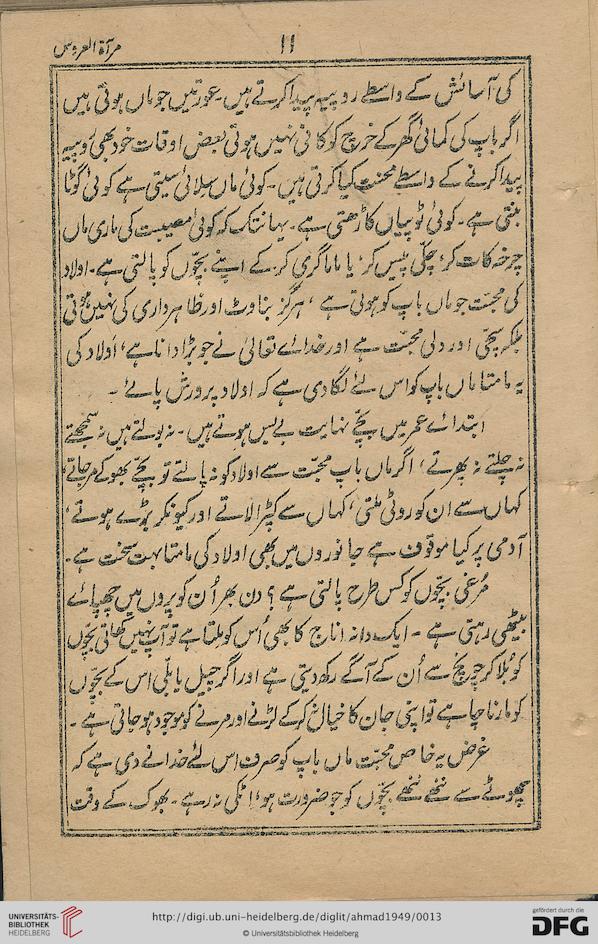 مرآۃ العروس
۱۱
کی آسائش کے واسطے روپیہ پیدا کرتے ہیں۔ عورتیں جو ماں ہوتی ہیں
اگر باپ کی کمائی گھر کے خرچ کو کافی نہیں ہوتی بعض اوقات خود بھی روپیہ
پیدا کرنے کے واسطے محنت کیا کرتی ہیں۔ کوئی ماں سلائی سیتی ہے کوئی گوٹا
بنتی ہے۔ کوئی ٹوپیاں کاڑھتی ہے۔ یہانتک کہ کوئی مصیبت کی ماری ماں
چرخہ کات کر، چکّی پیس کر، یا ماما گری کر کے اپنے بچّوں کو پالتی ہے۔ اولاد
کی محبّت جو ماں باپ کو ہوتی ہے، ہرگز بناوٹ اور ظاہر داری کی نہیں ہوتی
بلکہ سچّی اور دلی محبّت ہے اور خدائے تعالیٰ نے جو بڑا دانا ہے، اولاد کی
یہ مامتا ماں باپ کو اس لئے لگا دی ہے کہ اولاد پرورش پائے۔
ابتدائے عمر میں بچّے نہایت بے بس ہوتے ہیں۔ نہ بولتے ہیں نہ سمجھتے
نہ چلتے نہ پھرتے، اگر ماں باپ محبّت سے اولاد کو نہ پالتے تو بچّے بھوکے مر جاتے،
کہاں سے ان کو روٹی ملتی، کہاں سے کپڑا لاتے اور کیونکر بڑے ہوتے،
آدمی پر کیا موقوف ہے جانوروں میں بھی اولاد کی مامتا بہت سخت ہے۔
مُرغی بچّوں کو کس طرح پالتی ہے؟ دن بھر اُن کو پروں میں چھپائے
بیٹھی رہتی ہے۔ ایک دانہ اناج کا بھی اُس کو ملتا ہے تو آپ نہیں کھاتی بچّوں
کو بُلا کر چونچ سے اُن کے آگے رکھ دیتی ہے اور اگر چیل یا بلّی اس کے بچّوں
کو مارنا چاہے تو اپنی جان کا خیال نہ کر کے لڑنے اور مرنے کو موجود ہو جاتی ہے۔
غرض یہ خاص محبّت ماں باپ کو صرف اس لئے خدا نے دی ہے کہ
چھوٹے سے ننھے ننھے بچّوں کو جو ضرورت ہو، اٹکی نہ رہے۔ بھوک کے وقت
UNIVERSITÄTS-
BIBLIOTHEK
HEIDELBERG
http://digi.ub.uni-heidelberg.de/diglit/ahmad1949/0013
© Universitätsbibliothek Heidelberg
gefördert durch die
DFG